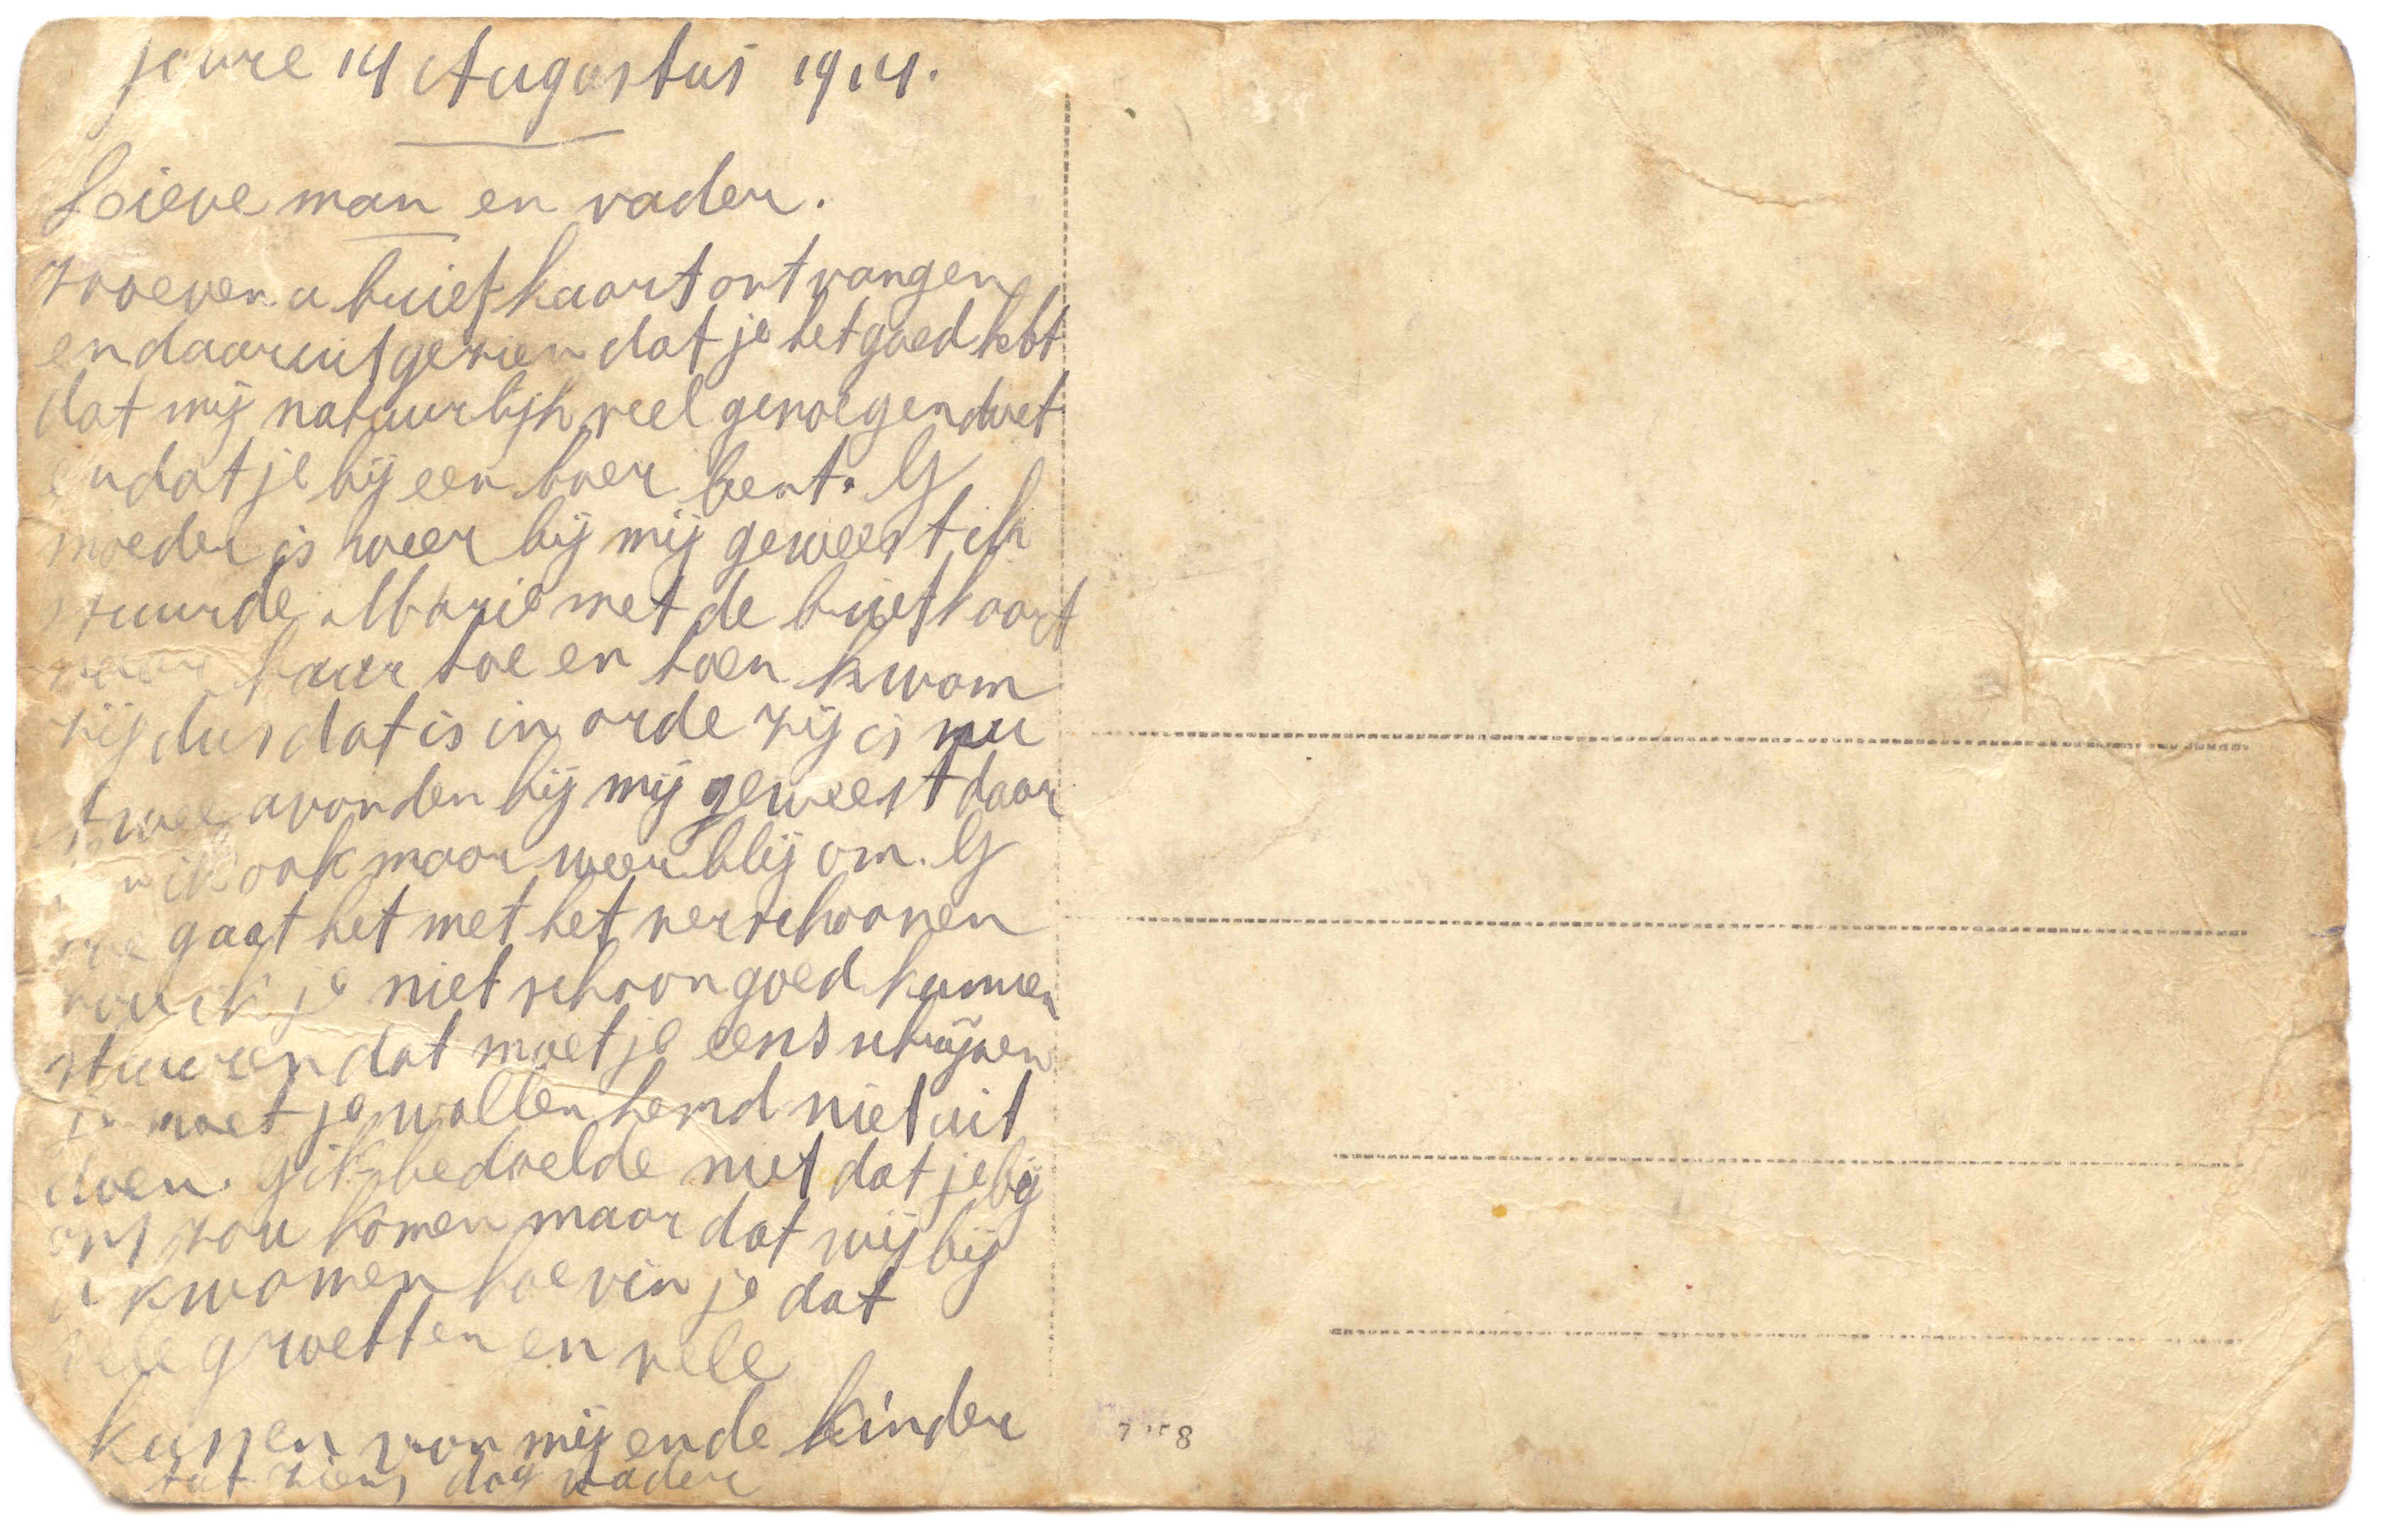 joure 14 Augustus 1914.
Lieve man en vader.
zooeven u briefkaart ontvangen
en daaruit gezien dat je het goed hebt
dat mij natuurlijk veel genoegen doet
en dat je bij een boer bent. G
moeder is weer bij mij geweest ik
stuurde Marie met de briefkaart
naar haar toe en toen kwam
zij dus dat is in orde zij is nu
twee avonden bij mij geweest daar
ik ook maar weer blij om. G
hoe gaat het met het verschoonen
zou ik je niet schoon goed kunnen
stuuren dat moet je eens schrijven
je moet je wollen hemd niet uit
doen. G ik bedoelde niet dat je bij
ons zou komen maar dat wij bij
u kwamen hoe vin je dat
vele groetten en vele
kussen van mij en de kinder
tot ziens dag vader
7 8